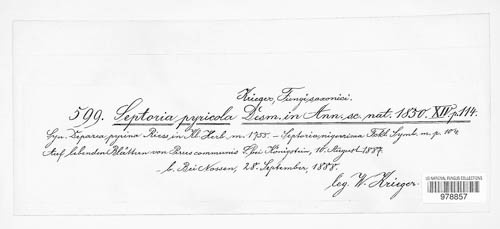 Krieger, Fungi saxonici.
599. Septoria pyricola Desm. in Ann. sc. nat. 1850. XIV. p. 114.
Syn. Deparea pyrina Riess, in Kl. Herb. m. 1755. – Septoria nigerrima Fckl Symb. m. p.
Auf lebenden Blättern von Pirus communis L. bei Königstein, 16. August 1887.
b. Bei Nossen, 28. September, 1888.
leg. W. Krieger.
US NATIONAL FUNGUS COLLECTIONS
978857